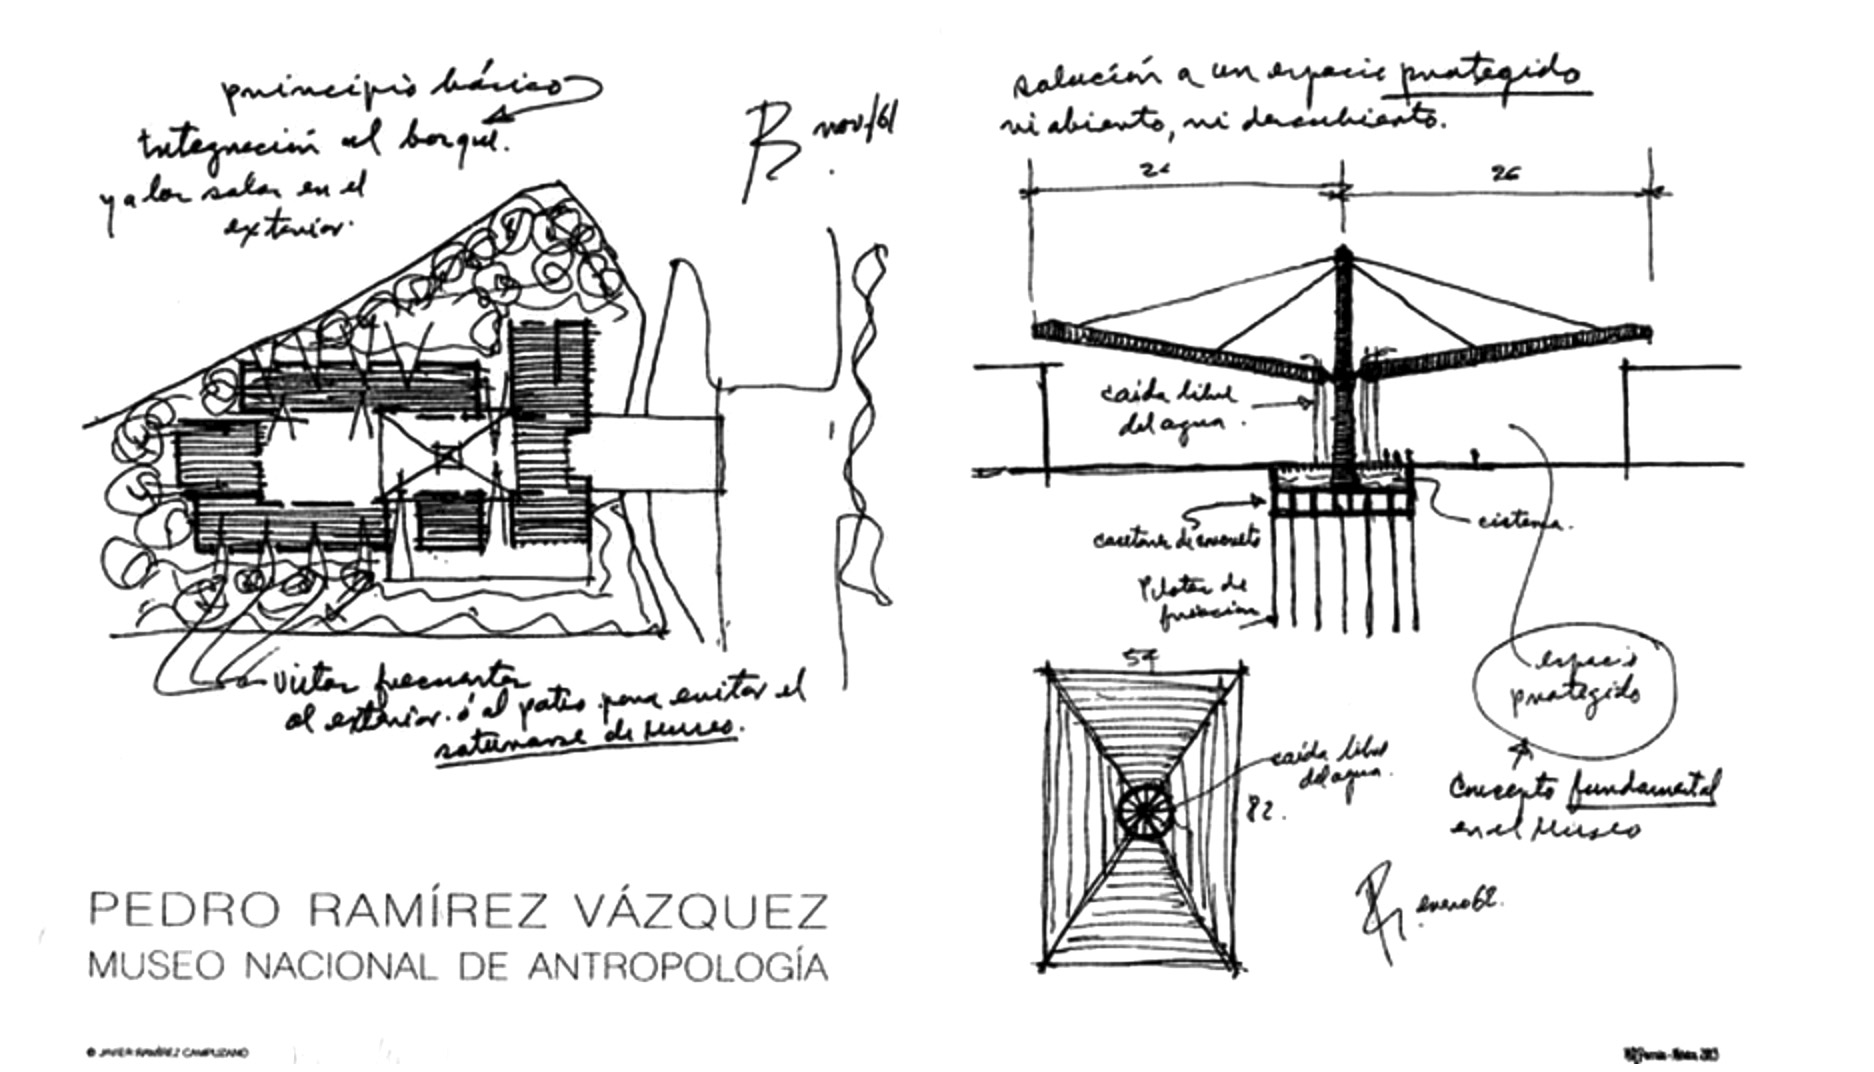 principio básico
integración al bosque.
y a las salas en el
exterior.
nov/61
vistas frecuentes
al exterior ó al patio para evitar el
saturarse de museo.
PEDRO RAMÍREZ VÁZQUEZ
MUSEO NACIONAL DE ANTROPOLOGÍA
© JAVIER RAMÍREZ CAMPUZANO
solución a un espacio protegido
ni abierto, ni descubierto.
26
caída libre
del agua.
cisterna.
de concreto
Pilotes de
espacio
protegido
54
caída libre
del agua.
82.
Concepto fundamental
en el Museo
enero 62.